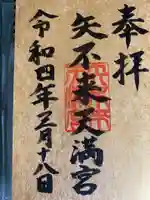 奉拝
矢不来天満宮
令和四年三月十八日